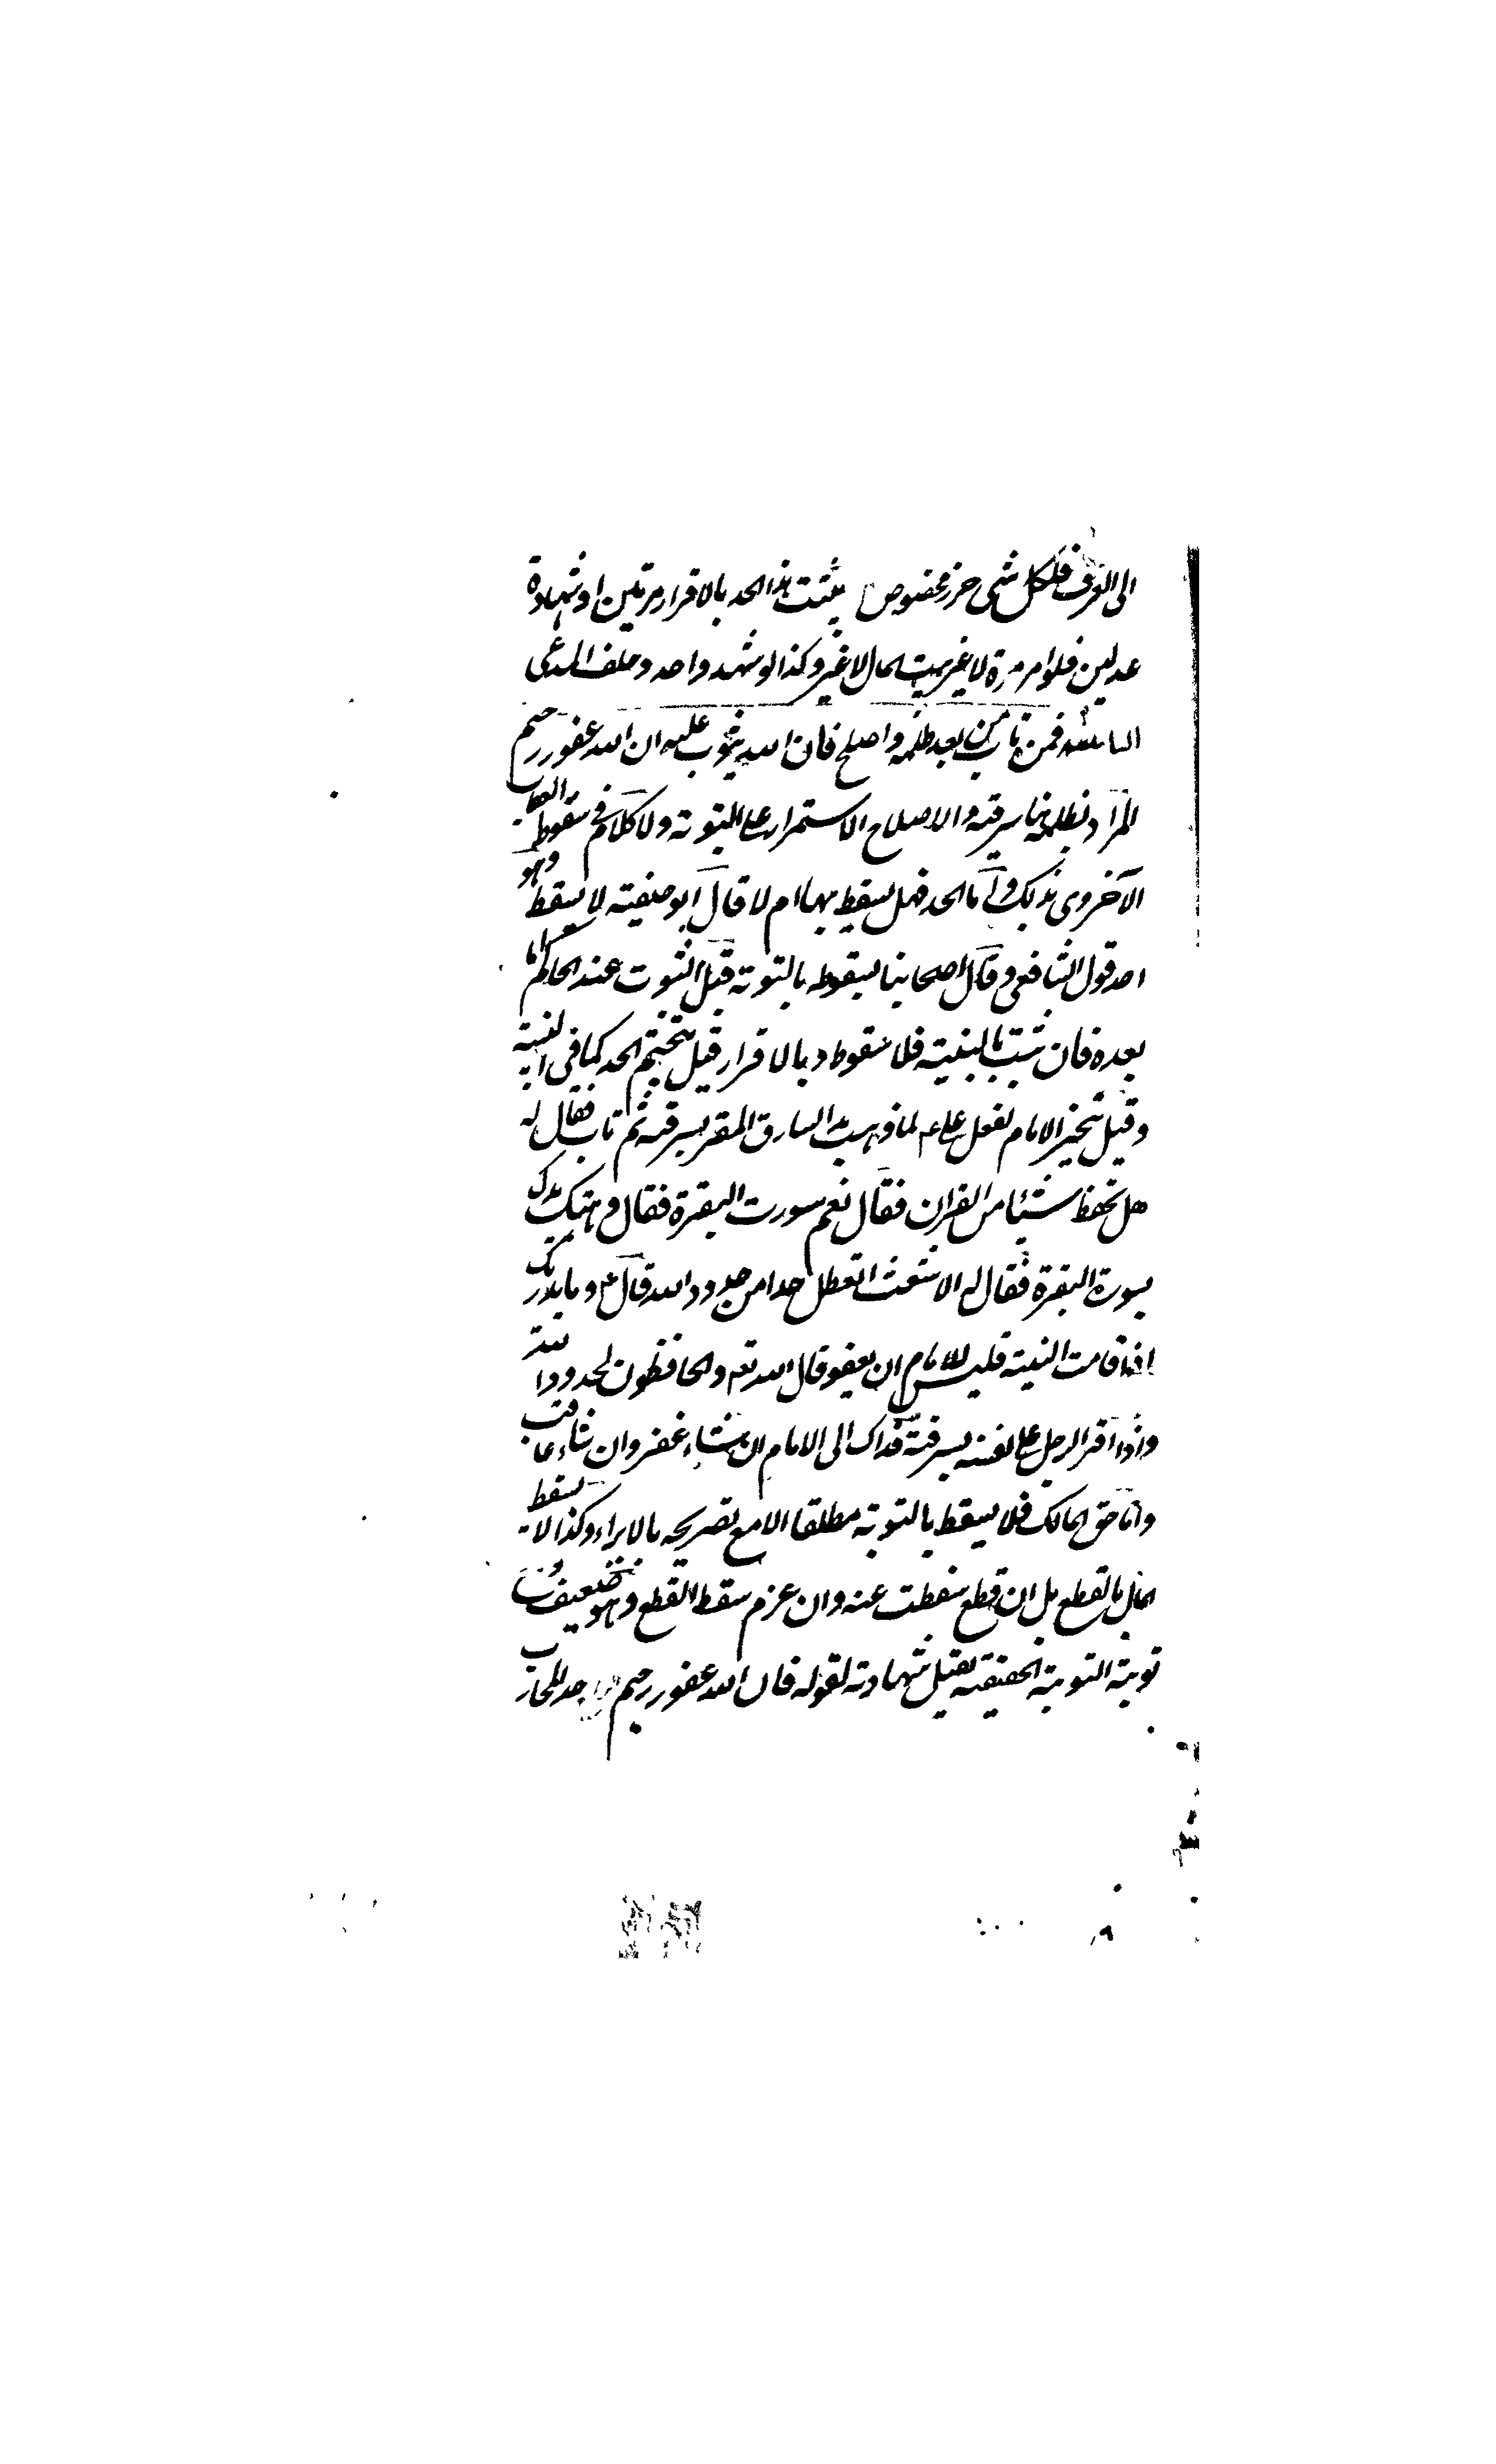 الى العرف فلكل شى حرز مخصوص يثبت هذا الحد بالاقرار مرتين او شهادة
عدلين فلو امر مرة لا غير يثبت المال لا غير وكذا لو شهد واحد وحلف المدعى
الثالثة فمن تاب من بعد ظلمه واصلح فان الله يتوب عليه ان الله غفور رحيم
المراد بظلمه هنا سرقته والاصلاح الاستمرار على التوبة ولا كلام فى سقوط العقاب
الآخروى بذلك واما الحد فهل يسقط بها ام لا قال ابو حنيفة لا يسقط وهو
احد قول الشافعى وقال اصحابنا بسقوطه بالتوبة قبل الثبوت عند الحاكم اما
بعده فان ثبت بالبينة فلا سقوط وبالاقرار قيل يتحتم الحد كما فى البينة
وقيل يتخير الامام لفعل على ع لما وهب يد السارق المقر بسرقته ثم تاب فقال له
هل تحفظ شيئا من القران فقال نعم سورت البقرة فقال وهبتك يدك
بسورة البقرة فقال له الاشعث اتعطل حدا من حدود الله قال ع وما يدريك
اذا قامت البينة فليس للامام ان يعفو قال الله تعه والحافظون لحدود الله
واذا اقر الرجل على نفسه بسرقته فذاك الى الامام ان شاء غفر وان شاء عاقب
واما حق المالك فلا يسقط بالتوبة مطلقا الا مع تصريحه بالابراء وكذا لا يسقط
المال بالقطع بل ان قطع سقطت عنه وان عزم سقط القطع وهو ضعيف
توبته التوبة الحقيقية يقبل شهادته لقوله فان الله غفور رحيم حد المحارب